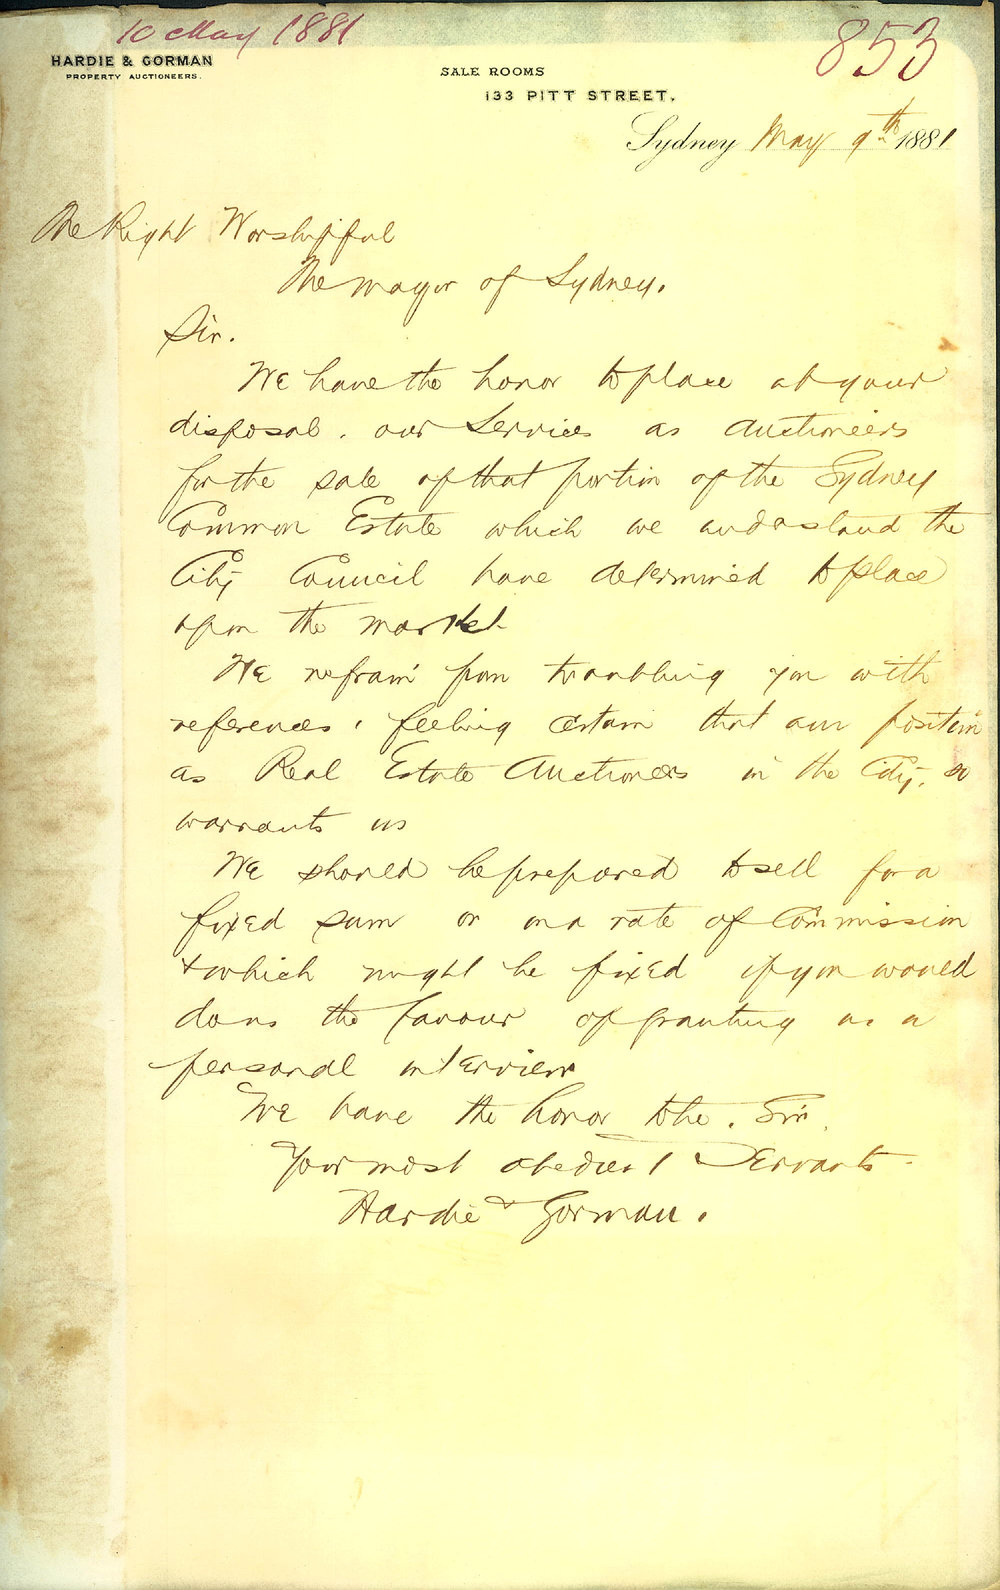 10 May 1881
853
HARDIE & GORMAN
PROPERTY AUCTIONEERS.
SALE ROOMS
133 PITT STREET.
Sydney May 9th 1881
The Right Worshipful
The Mayor of Sydney.
Sir.
We have the honor to place at your
disposal. our Services as Auctioneers
for the sale of that portion of the Sydney
Common Estate which we understand the
City Council have determined to place
upon the market.
We refrain from troubling you with
references, feeling certain that our position
as Real Estate Auctioneers in the City, so
warrants us
We should be prepared to sell for a
fixed sum or on a rate of Commission
& which might be fixed if you would
do us the favour of granting us a
personal interview
We have the honor to be. Sir.
Your most obedient Servants.
Hardie & Gorman.